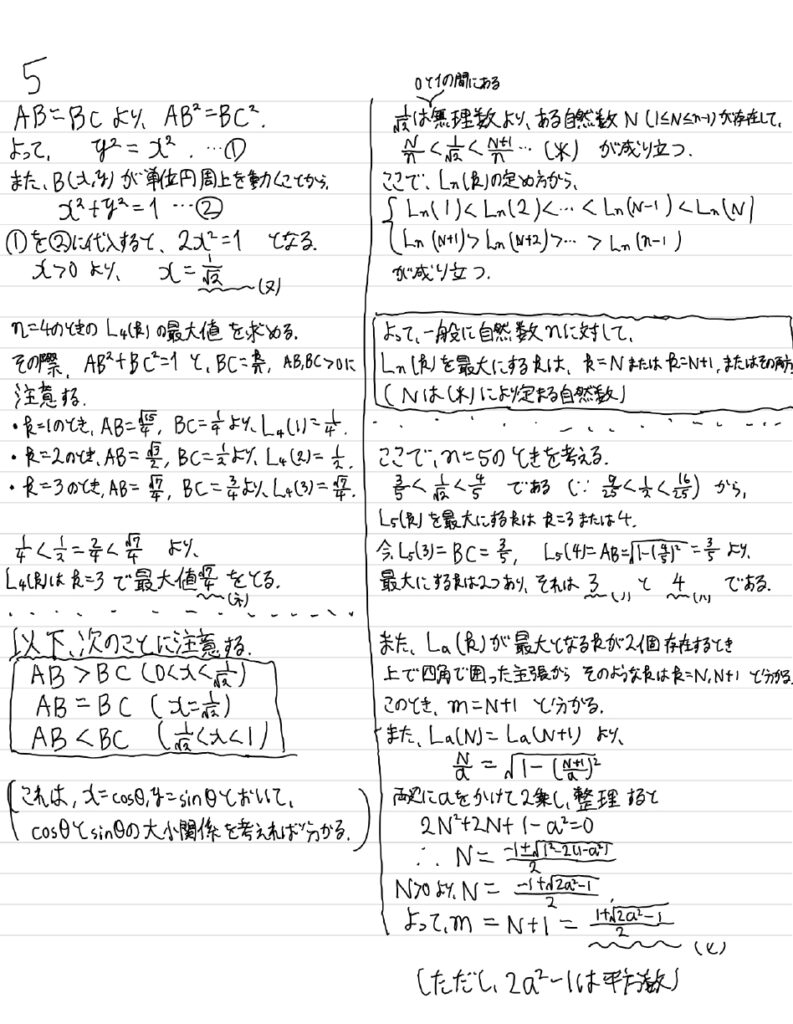 5
AB=BC より, AB²=BC².
よって, y²=x². …①
また, B(x,y)が単位円周上を動くことから,
x²+y²=1 …②
①を②に代入すると, 2x²=1 となる.
x>0 より, x=1/√2 (ヌ)
n=4のときの L₄(k) の最大値を求める.
その際, AB²+BC²=1 と, BC=k/n, AB,BC>0に
注意する.
・k=1のとき, AB=√15/4, BC=1/4より, L₄(1)=1/4.
・k=2のとき, AB=√3/2, BC=1/2より, L₄(2)=1/2.
・k=3のとき, AB=√7/4, BC=3/4より, L₄(3)=√7/4.
1/4<1/2=2/4<√7/4 より,
L₄(k)は k=3 で最大値√7/4 をとる.
(ネ)
以下, 次のことに注意する.
AB>BC (0<x<1/√2)
AB=BC (x=1/√2)
AB<BC (1/√2<x<1)
(これは, x=cosθ, y=sinθとおいて,
cosθとsinθの大小関係を考えれば分かる.)
0と1の間にある
1/√2は無理数より, ある自然数N (1≤N≤n-1)が存在して,
N/n<1/√2<N+1/n …(＊) が成り立つ.
ここで, Ln(k)の定め方から,
{ Ln(1)<Ln(2)<…<Ln(N-1)<Ln(N)
Ln(N+1)>Ln(N+2)>…>Ln(n-1)
が成り立つ.
よって, 一般に自然数nに対して,
Ln(k)を最大にするkは, k=Nまたはk=N+1, またはその両方
(Nは(＊)により定まる自然数)
ここで, n=5のときを考える.
3/5<1/√2<4/5 である (∵ 9/25<1/2<16/25) から,
L₅(k)を最大にするkは k=3または4.
今L₅(3)=BC=3/5, L₅(4)=AB=√1-(4/5)²=3/5 より,
最大にするkは2つあり, それは 3 (ノ) と 4 (ハ) である.
また, La(k)が最大となるkが2個存在するとき
上で四角で囲った主張から そのようなkはk=N,N+1 と分かる.
このとき, m=N+1 と分かる.
また, La(N)=La(N+1) より,
N/a=√1-(N+1/a)²
両辺にaをかけて2乗し, 整理すると
2N²+2N+1-a²=0
∴ N=-1±√1²-2(1-a²)/2
N>0より, N=-1+√2a²-1/2
よって, m=N+1=1+√2a²-1/2
(ヒ)
(ただし, 2a²-1は平方数)